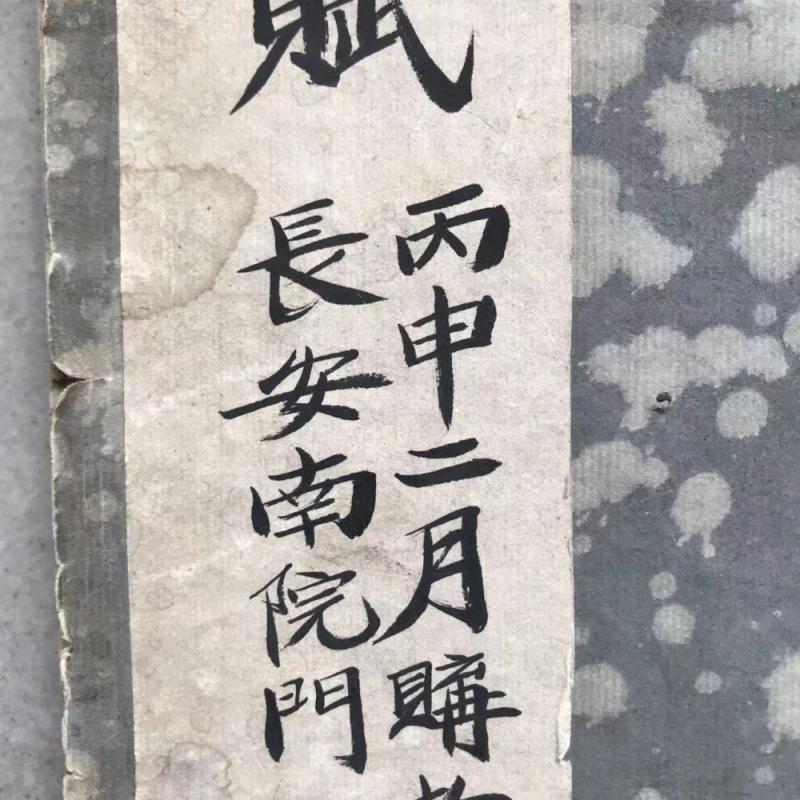 賦
丙申二月購
長安南院門